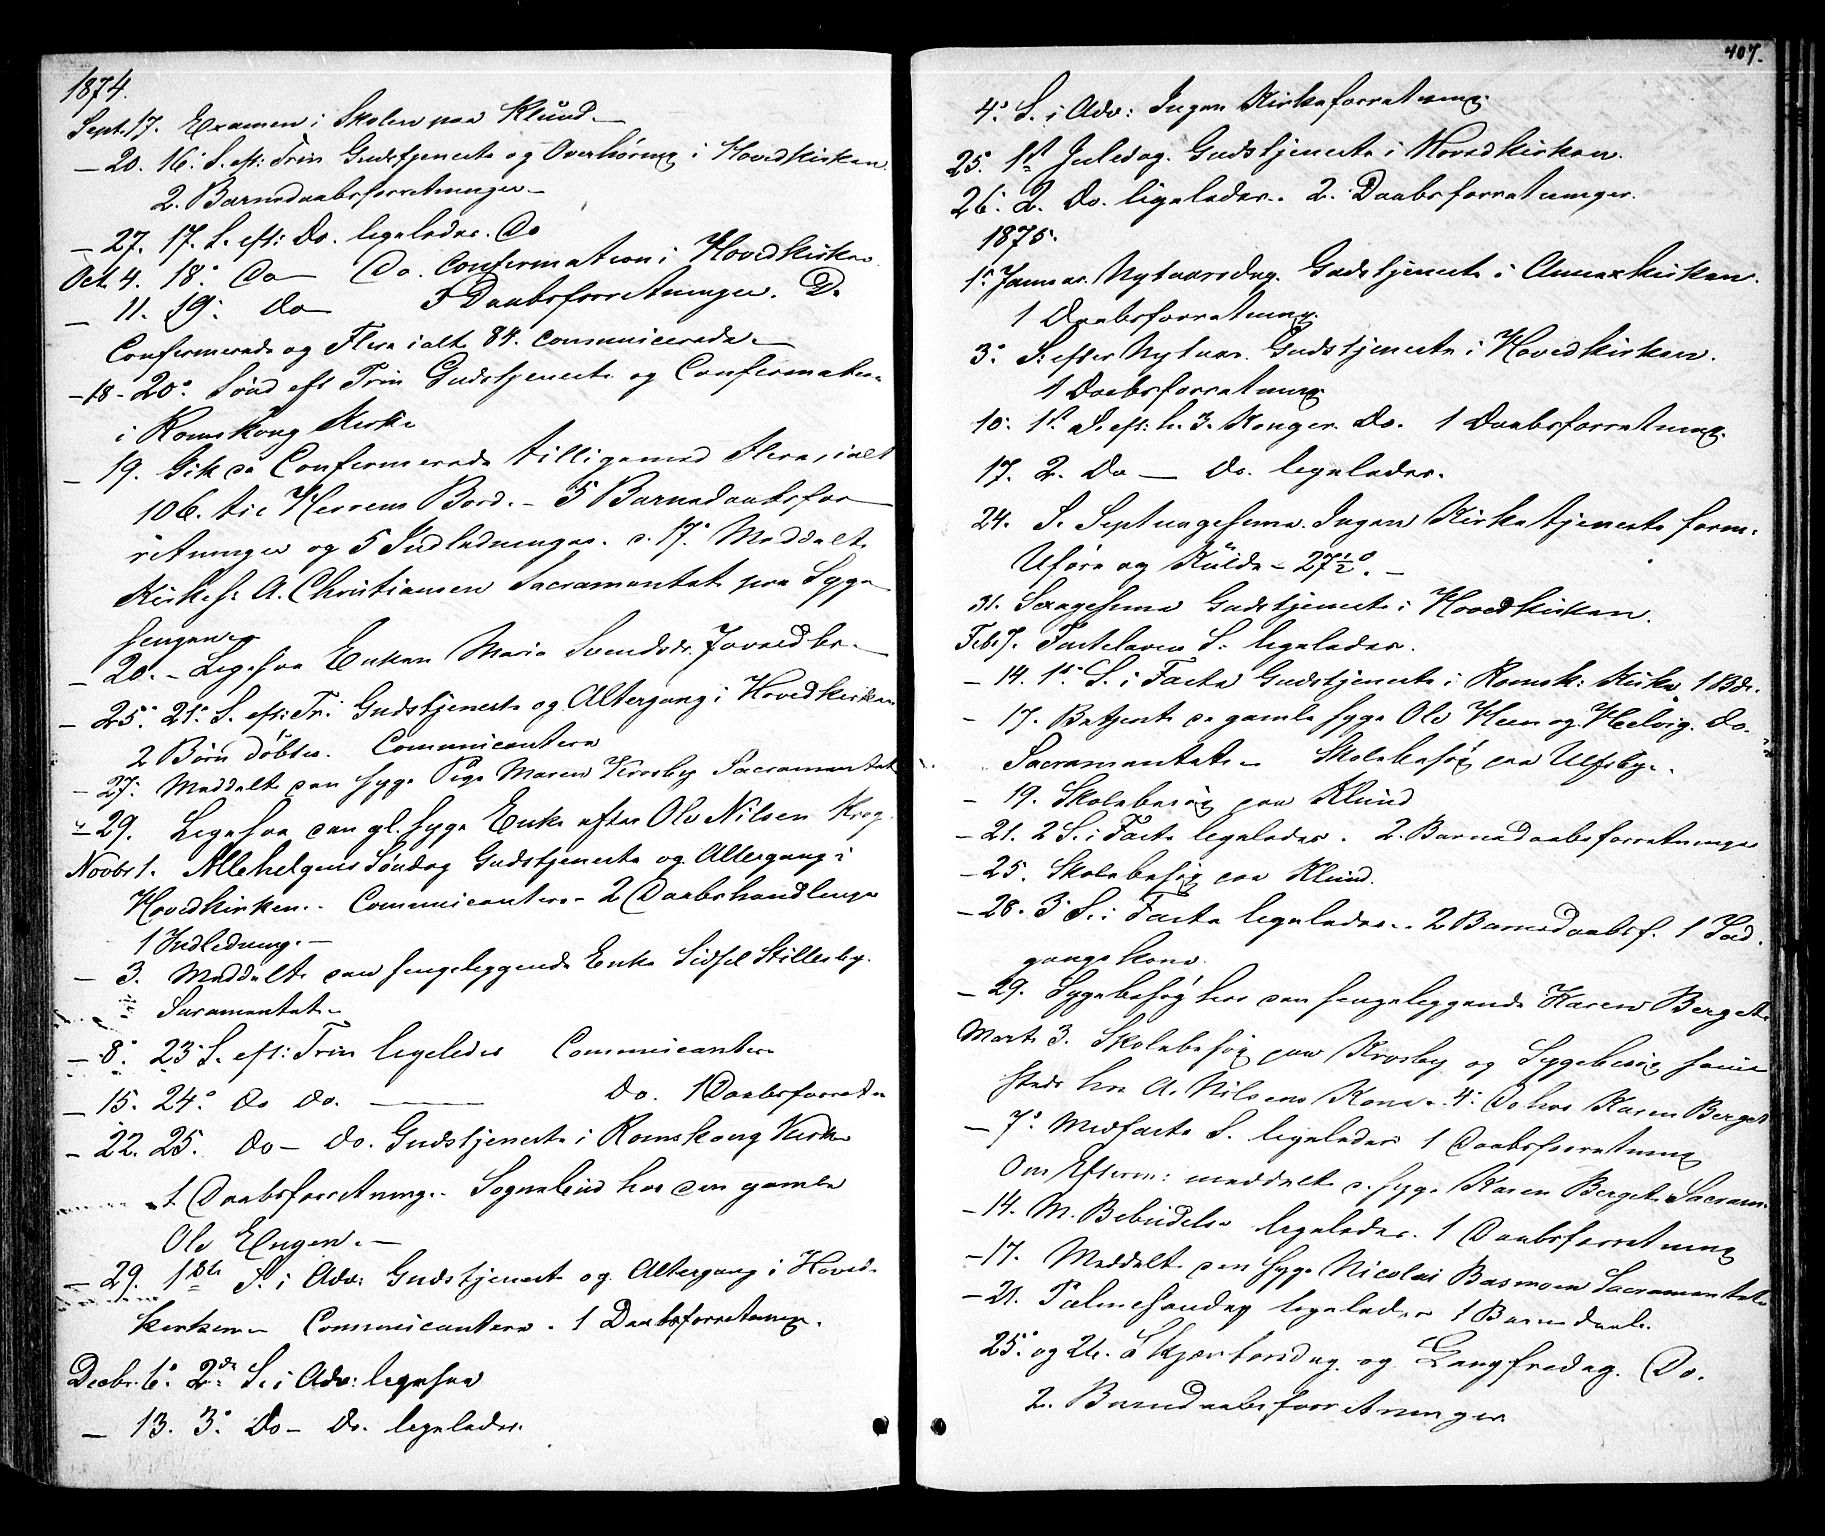 1874.
Sept. 17. Examen i Skolen paa Klund.
— 20. 16. S. eft: Trin Gudstjeneste og Overhøring i Hovedkirken.
2. Barnedaabsforretninger.
— 27. 17. S. eft: Do. ligeledes. Do
Oct. 4. 18. Do — Do. Confirmation i Hovedkirken
— 11. 19. Do — 3 Daabsforretninger. De
Confirmerede og Flere ialt 84. communicerede.
— 18 - 20. Sønd eft Trin Gudstjeneste og Confirmation
i Romskoug Kirke
— 19. Gik de Confirmerede tilligemed Flere, ialt
106. til Herrens Bord. — 5 Barnedaabsfor
retninger og 5 Indledninger. d. 17. Meddelte
Kirkes. A. Christiansen Sacramentet paa Syge
sengen
— 20. — Ligesaa Enken Maria Svendsdr.
— 25. 21. S. eft: Tr: Gudstjeneste og Altergang i Hovedkirken
2 Børn døbtes. Communicantere
— 27. Meddelte den syge Pige Maren Krosby Sacramentet
— 29. Ligesaa den gl. syge Enke efter Ole Nilsen Krog
Novbr 1. Allehelgens Søndag Gudstjeneste og Altergang i
Hovedkirken. Communicantere — 2 Daabshandlinger
1 Indledning. —
— 3. Meddelte den sengeliggende Enke Sidsel Stillesby.
Sacramentet.
— 8. 23 S. eft: Trin ligeledes Communicantere
— 15. 24. do do. — do. 1 Daabsforretn
— 22. 25. do — do. Gudstjeneste i Romskoug Kirke
1 Daabsforretning. Sognebud hos den gamle
Ole Engen. —
— 29. 1ste S. i Adv: Gudstjeneste og Altergang i Hoved
kirken. Communicantere. 1 Daabsforretning.
Decbr. 6. 2de S. i Adv: ligesaa
— 13. 3. Do — Do. ligeledes.
407.
4. S. i Adv: Ingen Kirkeforretning.
25. 1st Juledag. Gudstjeneste i Hovedkirken.
26. 2. Do. ligeledes. 2. Daabsforretninger.
1875.
1. Januar. Nytaarsdag. Gudstjeneste i Annexkirken.
1 Daabsforretning.
3. S. efter Nytaar. Gudstjeneste i Hovedkirken.
1 Daabsforretning
10. 1st S. eft: h. 3. Konger. Do. 1 Daabsforretning.
17. 2. Do — Do. ligeledes.
24. S. Septuagesima. Ingen Kirketjeneste form.
Uføre og Kulde — 27½°. —
31. Sexagesima Gudstjeneste i Hovedkirken.
Feb. 7. Fastelavns S. ligeledes.
— 14. 1st S. i Faste Gudstjeneste i Romsk: Kirke. 1 Bd.
— 17. Betjente de gamle syge Ole Heen og Helvig. do.
Sacramentet. — Skolebesøg paa Ulfsby.
— 19. Skolebesøg paa Klund
— 21. 2 S. i Faste ligeledes. 2. Barnedaabsforretninger
— 25. Skolebesøg paa Klund.
— 28. 3 S. i Faste ligeledes. 2 Barnedaabsf. 1 Ind
gangskone.
— 29. Sygebesøg hos den sengeliggende Karen Berget.
Marts 3. Skolebesøg paa Krosby og Sygebesøg samme
steds hos A. Nilsens Kone. 4. Do hos Karen Berget
— 7. Midfaste S. ligeledes 1 Daabsforretning
Om Efterm: meddelte d. syge Karen Berget Sacram.
— 14. M. Bebudelse ligeledes. 1 Daabsforretning
— 17. Meddelt den syge Nicolai Basmoen Sacramentet
— 21. Palmesøndag ligeledes 1 Barnedaab.
25. og 26. Skjærtorsdag og Langfredag. Do.
2. Barnedaabsforretninger